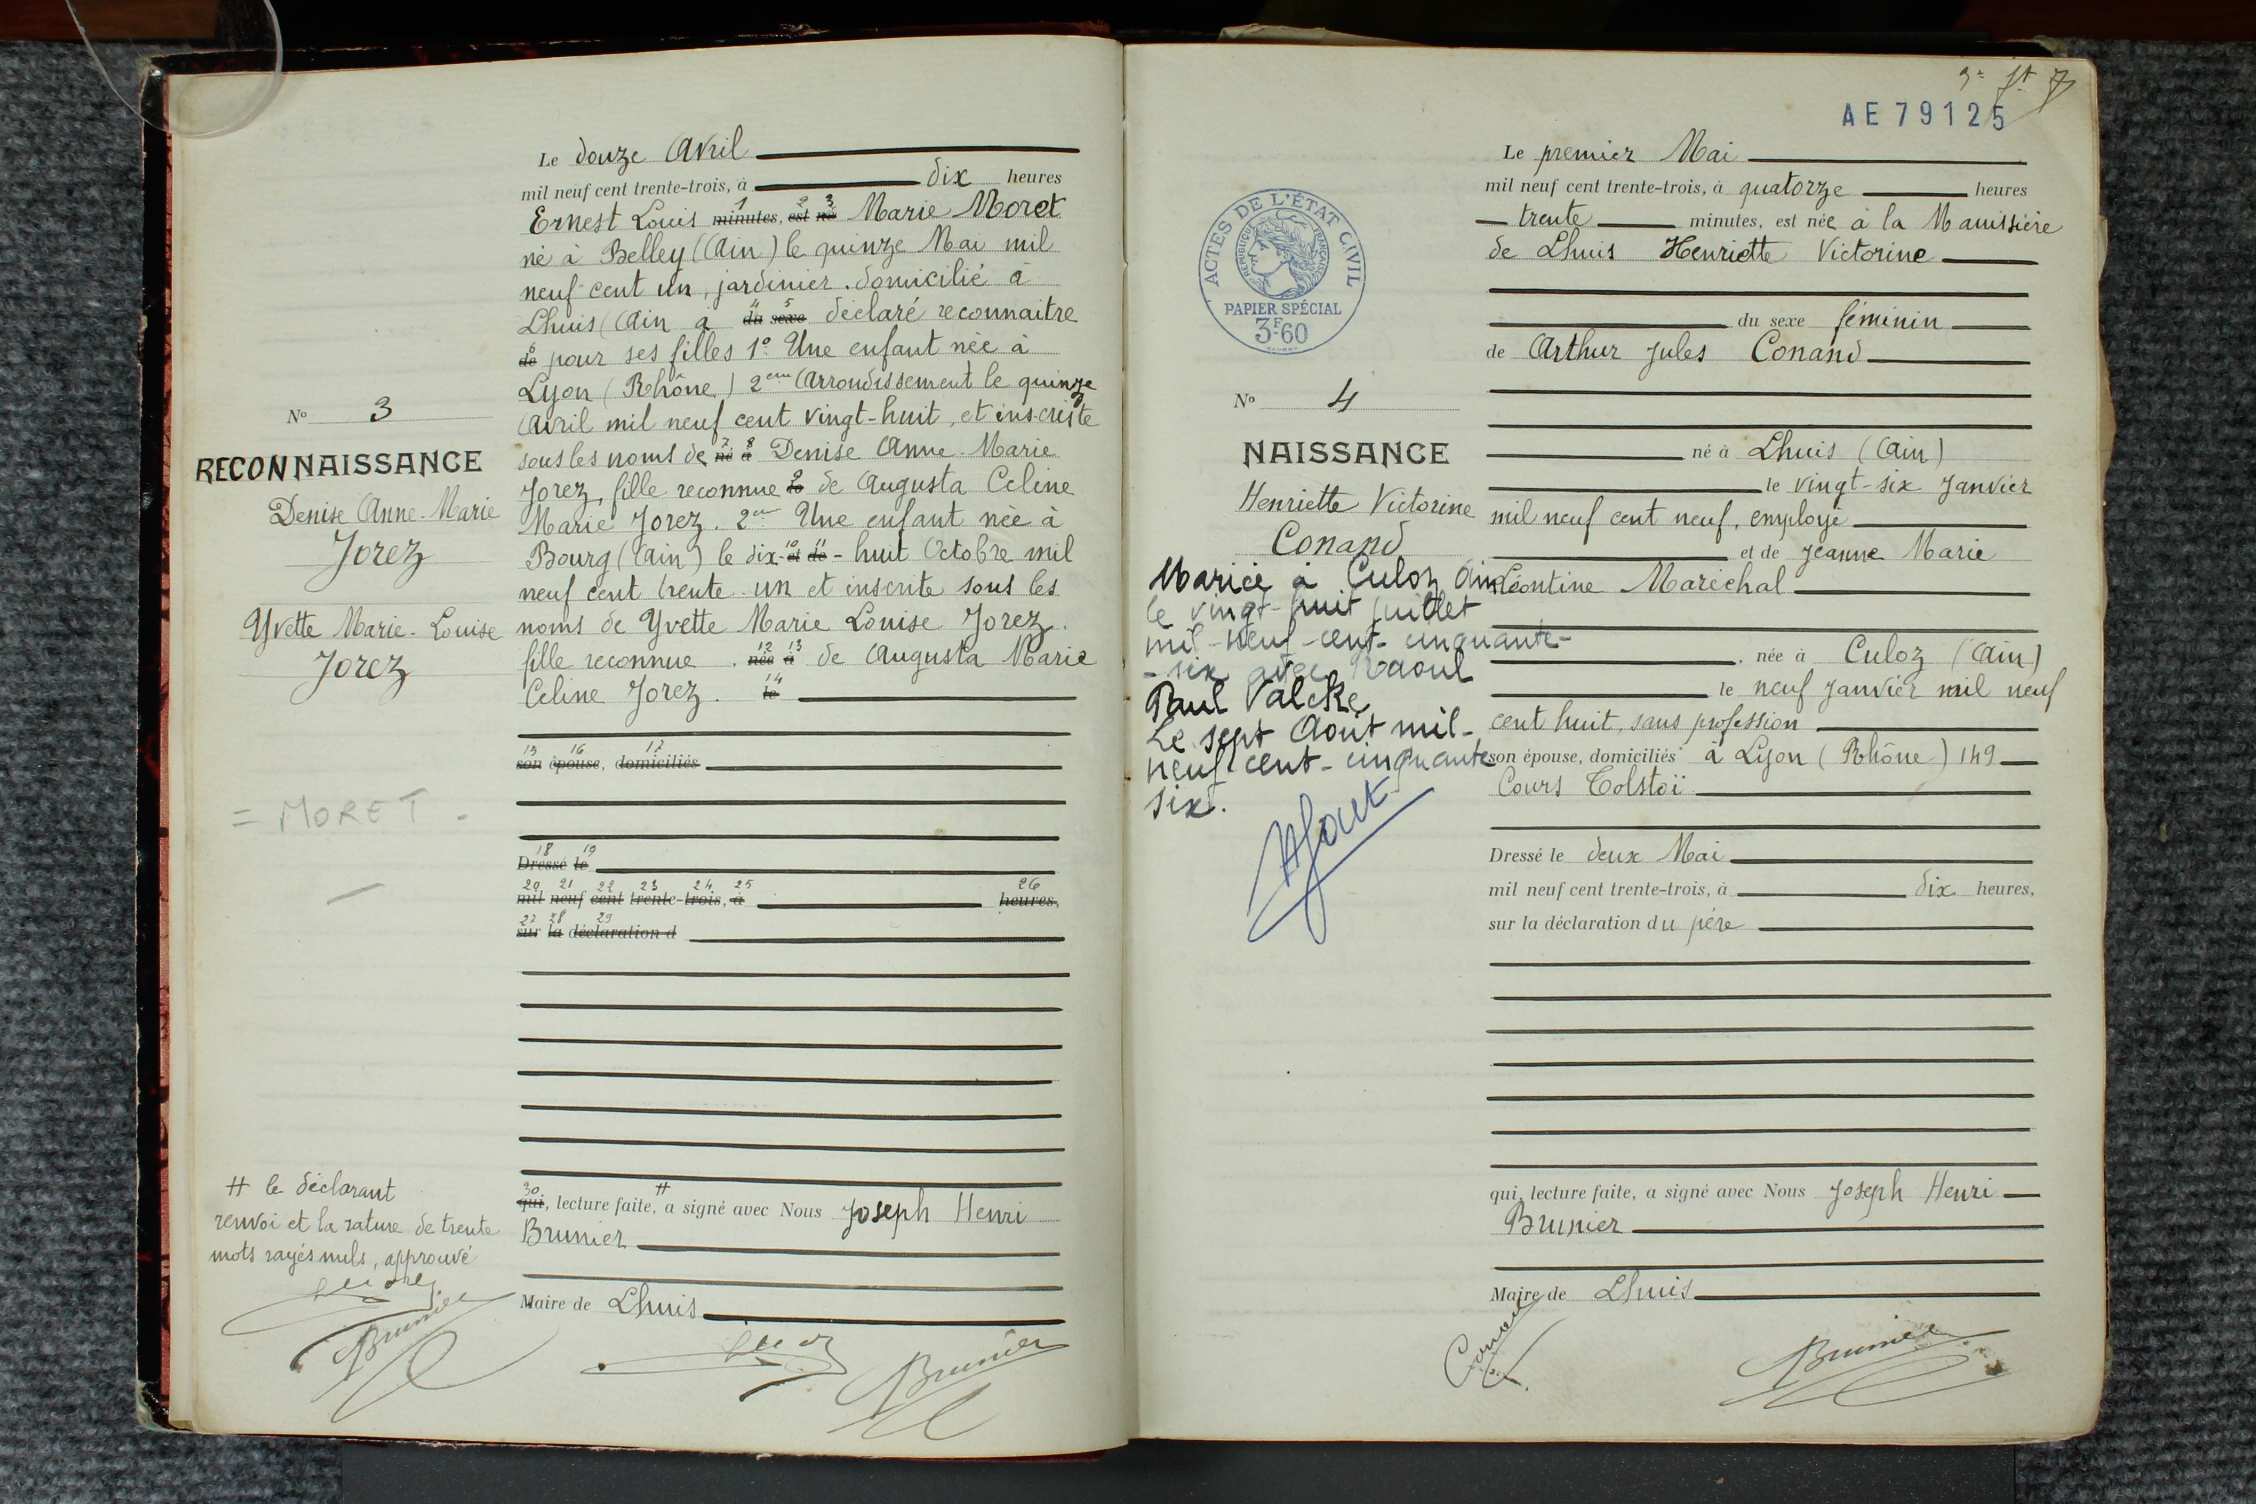 Le douze Avril
mil neuf cent trente-trois, à dix heures
1 2 3
Ernest Louis minutes, est né Marie Moret
né à Belley (Ain) le quinze Mai mil
neuf cent un, jardinier. domicilié à
4 5
Lhuis (Ain a du sexe déclaré reconnaitre
6
de pour ses filles 1º Une enfant née à
Lyon (Rhône) 2eme Arrondissement le quinze
Avril mil neuf cent vingt-huit, et inscrite
7 8
sous les noms de né à Denise Anne-Marie
9
Jorez, fille reconnue le de Augusta Celine
Marie Jorez. 2º Une enfant née à
10 11
Bourg (Ain) le dix-et de-huit Octobre mil
neuf cent trente-un et inscrite sous les
noms de Yvette Marie Louise Jorez.
12 13
fille reconnue. née à de Augusta Marie
14
Celine Jorez. le
15 16 17
son épouse, domiciliés
18 19
Dressé le
20 21 22 23 24 25 26
mil neuf cent trente-trois, à heures,
27 28 29
sur la déclaration d
30 #
qui, lecture faite, a signé avec Nous Joseph Henri
Brunier
Maire de Lhuis
Brunier
Nº 3
RECONNAISSANCE
Denise Anne-Marie
Jorez
Yvette Marie-Louise
Jorez
= MORET -
# le déclarant
renvoi et la rature de trente
mots rayés nuls, approuvé
Brunier
7
AE 79125
ACTES DE L'ÉTAT CIVIL
REPUBLIQUE FRANÇAISE
PAPIER SPÉCIAL
3F60
Nº 4
NAISSANCE
Henriette Victorine
Conand
Mariée à Culoz Ain
le vingt-huit juillet
mil-neuf-cent-cinquante-
-six avec Raoul
Paul Valcke
Le sept Août mil-
neuf-cent-cinquante
six.
Le premier Mai
mil neuf cent trente-trois, à quatorze heures
trente minutes, est née à la Maussière
de Lhuis Henriette Victorine
du sexe féminin
de Arthur Jules Conand
né à Lhuis (Ain)
le vingt-six Janvier
mil neuf cent neuf, employé
et de Jeanne Marie
Léontine Maréchal
née à Culoz (Ain)
le neuf Janvier mil neuf
cent huit, sans profession
son épouse, domiciliés à Lyon (Rhône) 149
Cours Tolstoï
Dressé le deux Mai
mil neuf cent trente-trois, à dix heures,
sur la déclaration du père
qui, lecture faite, a signé avec Nous Joseph Henri
Brunier
Maire de Lhuis
Conand
Brunier